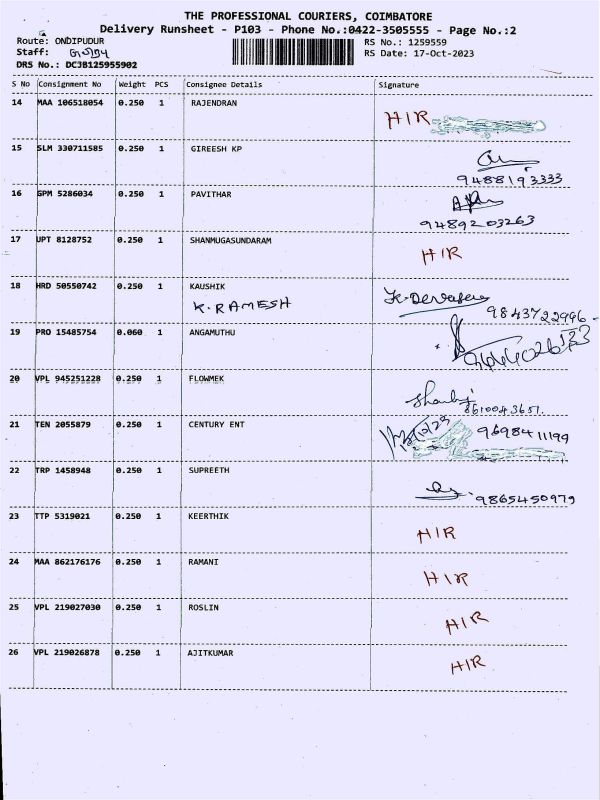 THE PROFESSIONAL COURIERS, COIMBATORE
Delivery Runsheet - P103 - Phone No.:0422-3505555 - Page No.:2
Route: ONDIPUDUR RS No.: 1259559
Staff: RS Date: 17-Oct-2023
DRS No.: DCJB125955902
S No Consignment No Weight PCS Consignee Details Signature
14 MAA 106518054 0.250 1 RAJENDRAN HIR
15 SLM 330711585 0.250 1 GIREESH KP
9488193333
16 GPM 5286034 0.250 1 PAVITHAR
9489203263
17 UPT 8128752 0.250 1 SHANMUGASUNDARAM HIR
18 HRD 50550742 0.250 1 KAUSHIK
K. RAMESH 9843722996
19 PRO 15485754 0.060 1 ANGAMUTHU
20 VPL 945251228 0.250 1 FLOWMEK
8610043651.
21 TEN 2055879 0.250 1 CENTURY ENT 9698411199
22 TRP 1458948 0.250 1 SUPREETH
9865450979
23 TTP 5319021 0.250 1 KEERTHIK HIR
24 MAA 862176176 0.250 1 RAMANI HIR
25 VPL 219027030 0.250 1 ROSLIN HIR
26 VPL 219026878 0.250 1 AJITKUMAR HIR